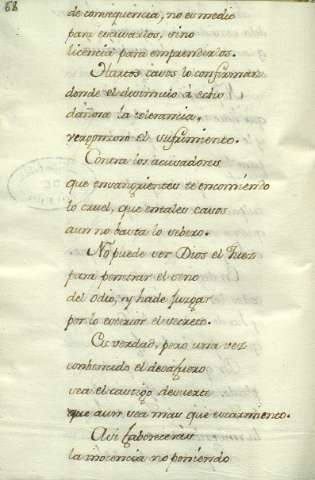 68
de consequencia, no es medio
para escusarlos, sino
licencia para emprenderlos.
Hartos casos lo confirman
donde el disimulo à echo
dañosa la tolerancia,
y el sufrimiento.
Contra los acusadores
que te encomiendo
lo cruel, que en tales casos
aun no basta lo sebero.
No puede ser Dios el Juez
para penetrar el seno
del odio, y hade juzgar
por lo exterior el secreto.
Es verdad, pero una vez
conbencido el desafuero
sea el castigo de suerte
que aun sea mas que escarmiento.
Asi faboreceràs
la inocencia no poniendo